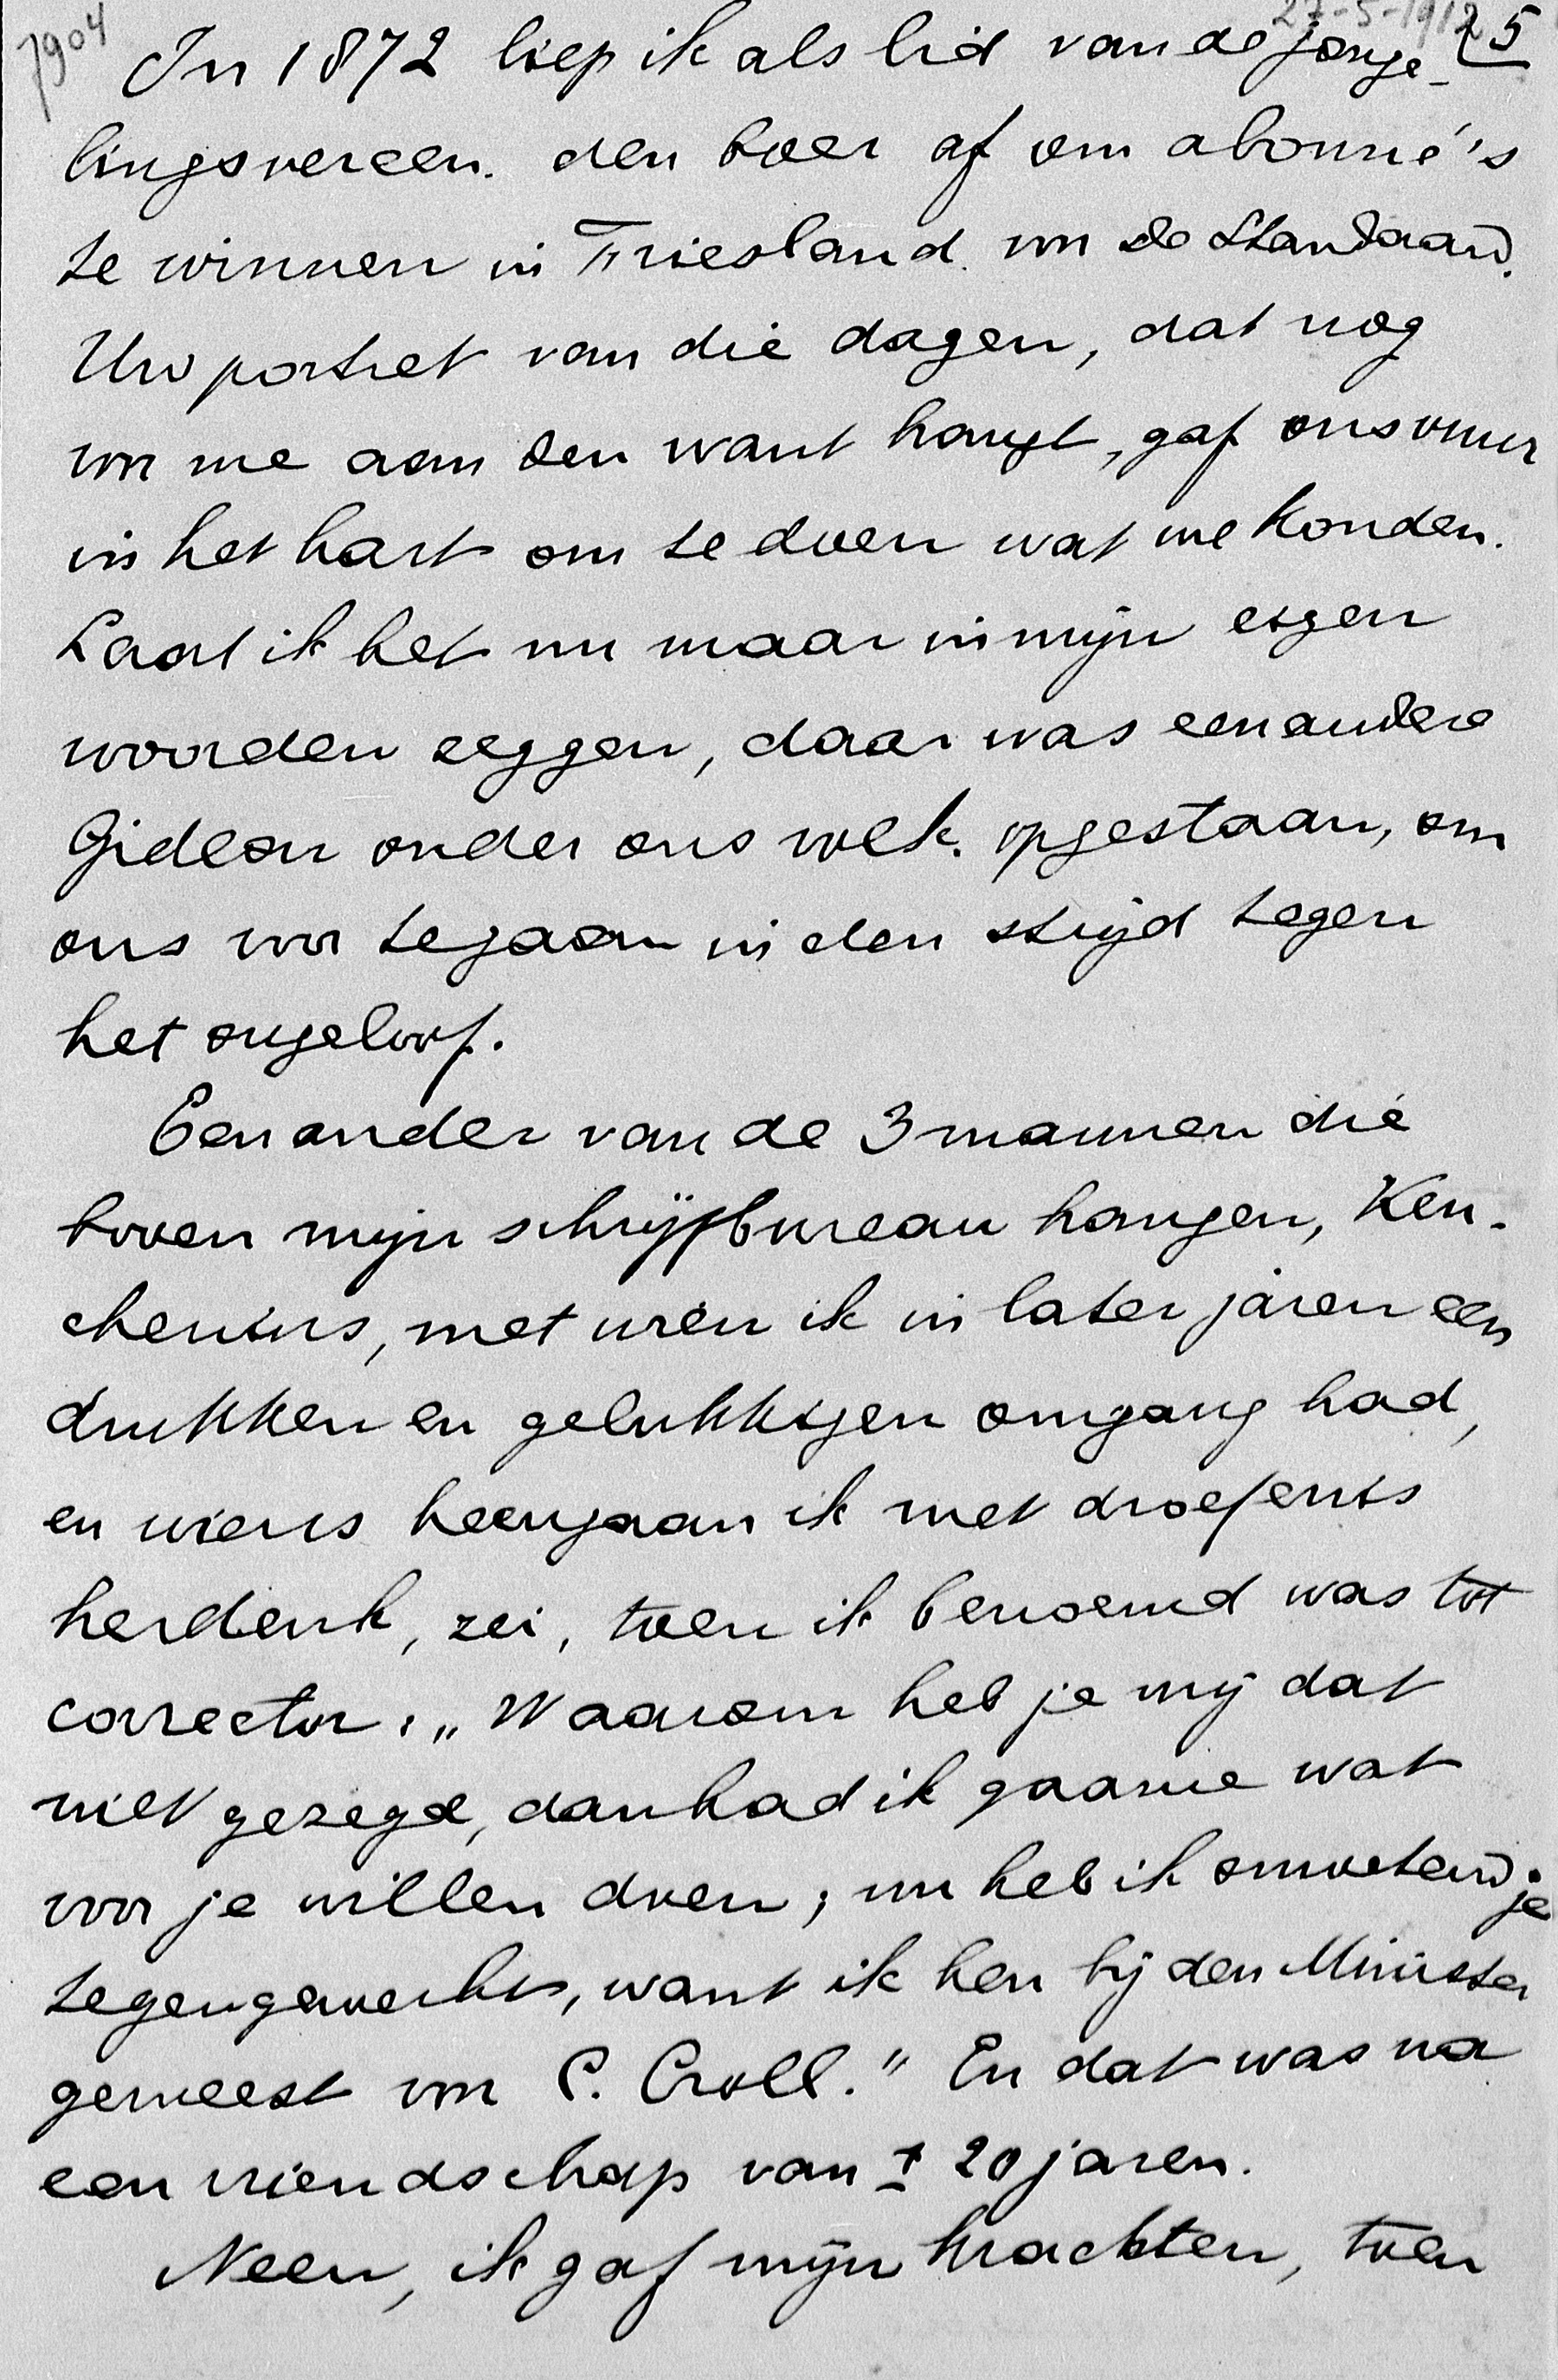 7904
27-5-1912
25
In 1872 liep ik als lid van de jonge-
lingsvereen. den boer af om abonné's
te winnen in Friesland voor De Standaard.
Uw portret van die dagen, dat nog
voor me aan den want hangt, gaf ons vuur
in het hart om te doen wat we konden.
Laat ik het nu maar in mijn eigen
woorden zeggen, daar was een andere
Gideon onder ons volk opgestaan, om
ons voor te gaan in den strijd tegen
het ongeloof.
Een ander van de 3 mannen die
boven mijn schrijfbureau hangen, Keu-
chenius, met wien ik in later jaren een
drukken en gelukkigen omgang had,
en wiens heengaan ik met droefenis
herdenk, zei, toen ik benoemd was tot
corrector: „Waarom heb je mij dat
niet gezegd, dan had ik gaarne wat
voor je willen doen; nu heb ik onwetend je
tegengewerkt, want ik ben bij den Minister
geweest voor C. Croll." En dat was na
een vriendschap van ± 20 jaren.
Neen, ik gaf mijn krachten, toen